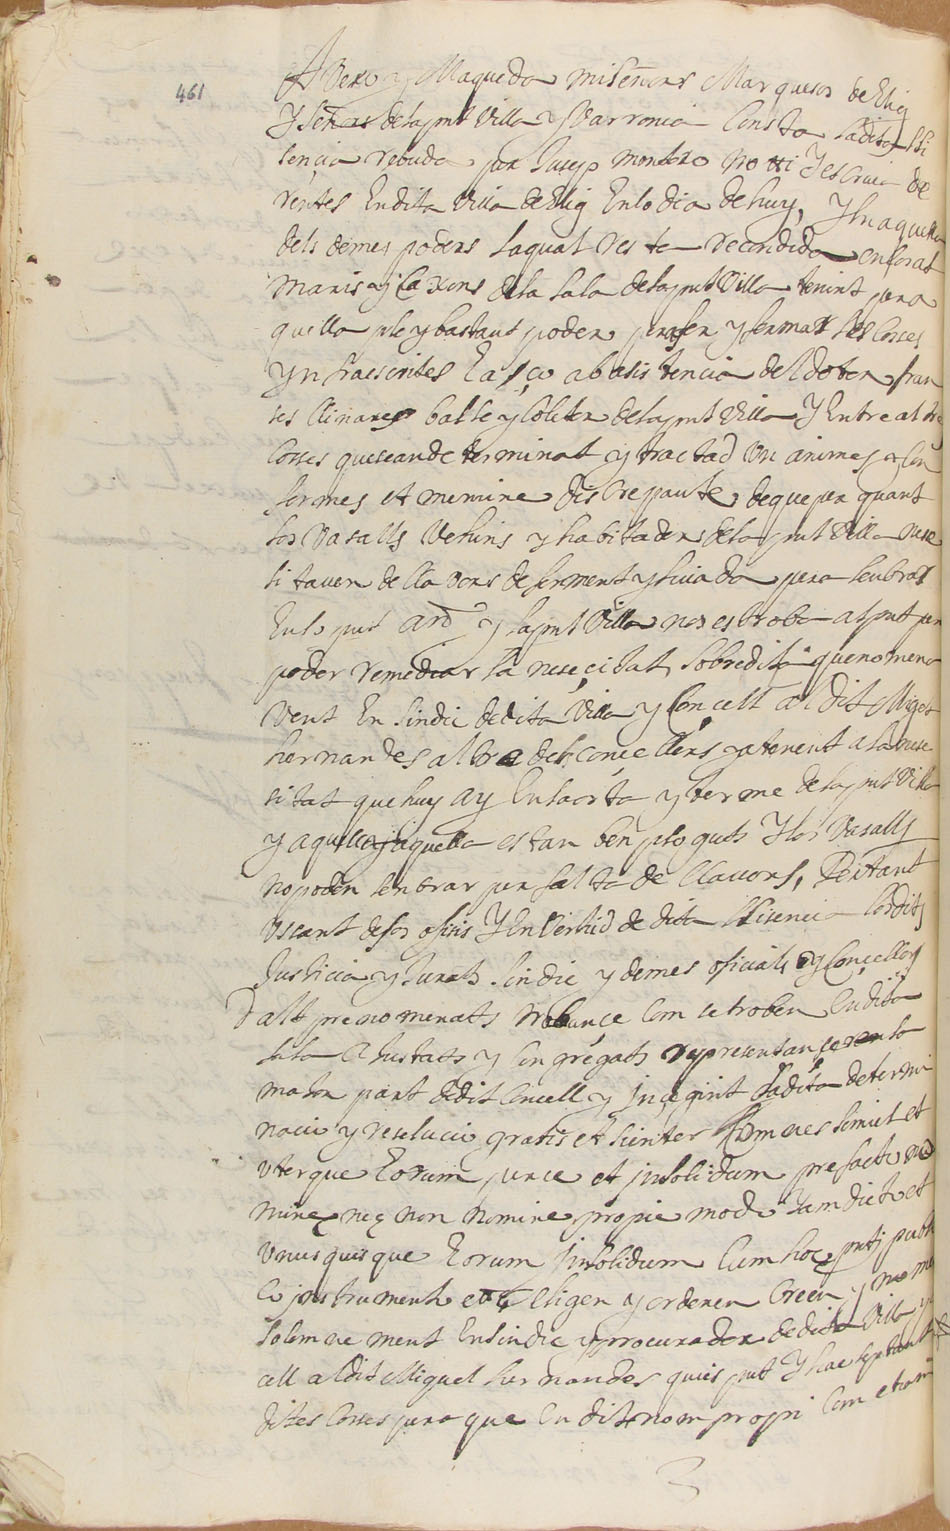 461
Avero y Maqueda mi señors Marquesos de Elig
Y señors de la pnt Villa y Varronia Consta la dita lli
sencia rebuda per Jusep montero notti Y escriva de
rentes En dita villa de Elig En lo dia de huy, Y En aquella
dels demes poders la qual resta recondida en lo rat
maris y Caxons de la sala de la pnt Villa tenint pera
quella ple y bastant poder pera fer y fermar les Coses
ynfraescrites Ea ço ab asistencia del dotor fran
ses llinares batle y Coletor de la pnt Villa Y Entre altres
Coses que se an determinat y tractad un animes y Con
formes et nemine discrepante de que per quant
los Vasalls Vehins y habitadors de la pnt Villa nese
sitaven de llavors de forment y sivada pera senbrar
En lo pnt any y la pnt Villa no es troba al pnt per
poder remediar la nesecitat sobredita que nomena
vent En Sindic de dita Villa y Concell al dit Migel
hernandes altre dels concellers y atenent a la nese
sitat que huy ay En la orta y terme de la pnt Villa
y aquella estan ben plogudes Y los Vasalls
no poden senbrar per falta de llavors, Per tant
Usant de sos ofisis Y En Virtud de dita llisencia los dits
Justicia y Jurats Sindic y demes oficials y Concellers
Dalt prenomenats Com se troben En dita
sala ajustats y Congregats representant la
major part de dit Concell y Incepint la dita determi
nacio y resolucio gratis et sienter omnes simul et
uterque Eorum per se et insolidum prefacto no
mine neq non nomine propie modo iam dicto et
Unus quisque Eorum insolidum Cum hoc pnti publi
Co instrument etc Eligen y ordenen Creen y nomenen
solemnement En sindic y procurador de dita Villa y
cell al dit Miguel hernandes qui es pnt Y ha aseptant
dites Coses pera que En dit nom propri Com etiam